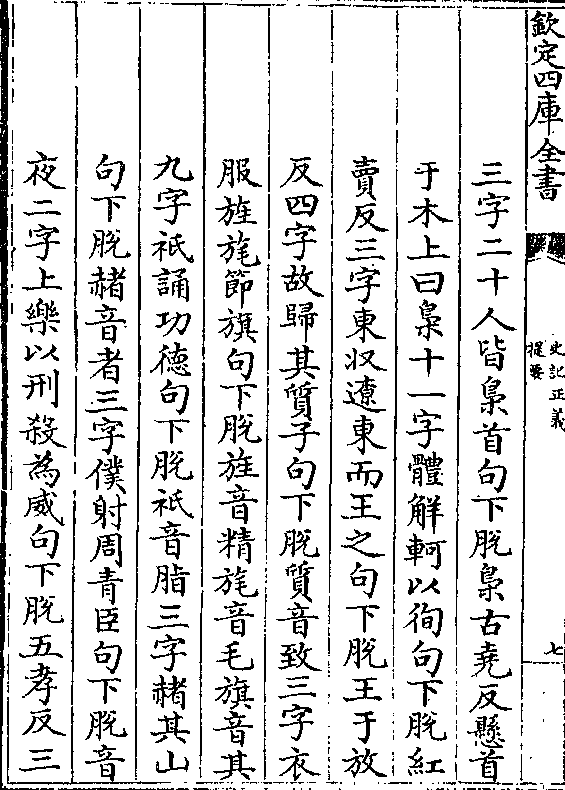 欽定四庫全書
史記正義
提要
七
三字二十人皆梟首句下脫梟古堯反懸首
于木上曰梟十一字體解軻以徇句下脫紅
賣反三字東収遼東而王之句下脫王于放
反四字故歸其質子句下脫質音致三字衣
服旌旄節旗句下脫旌音精旄音毛旗音其
九字祇誦功德句下脫祇音脂三字赭其山
句下脫赭音者三字僕射周青臣句下脫音
夜二字上樂以刑殺為威句下脫五孝反三